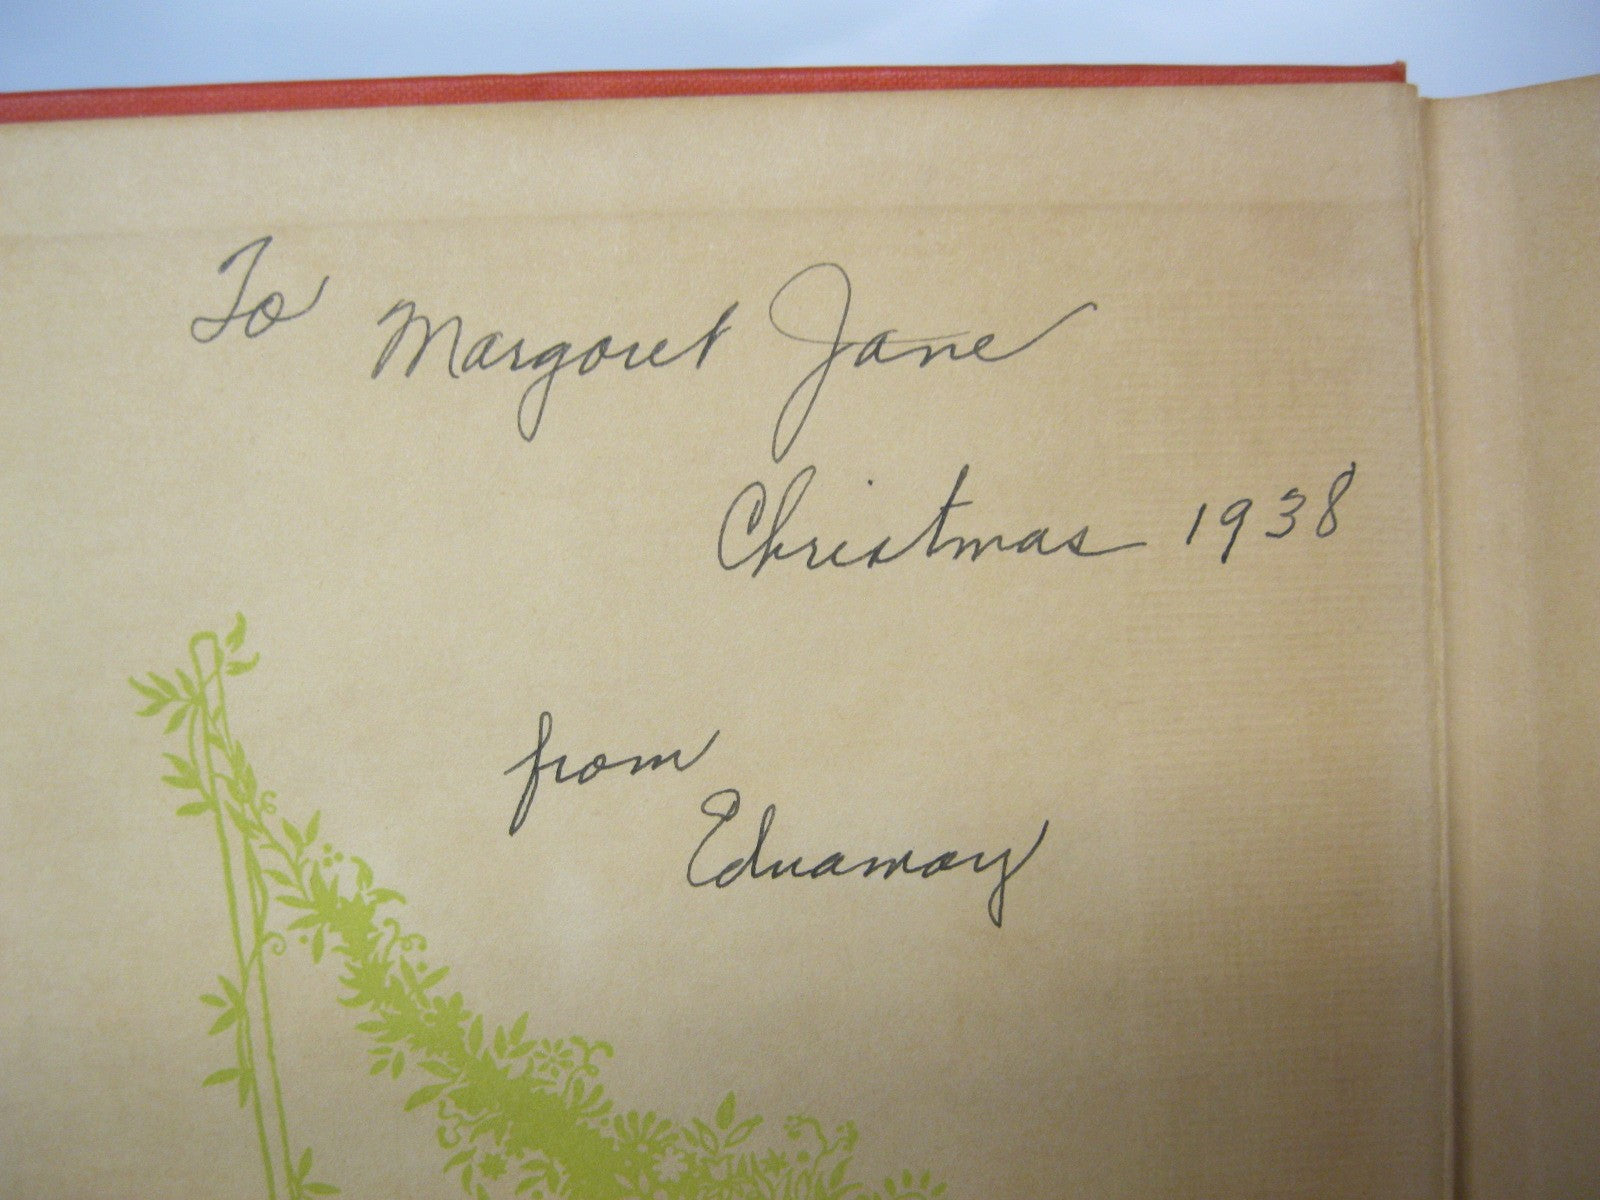 To Margaret Jane
Christmas 1938
from
Ednamay